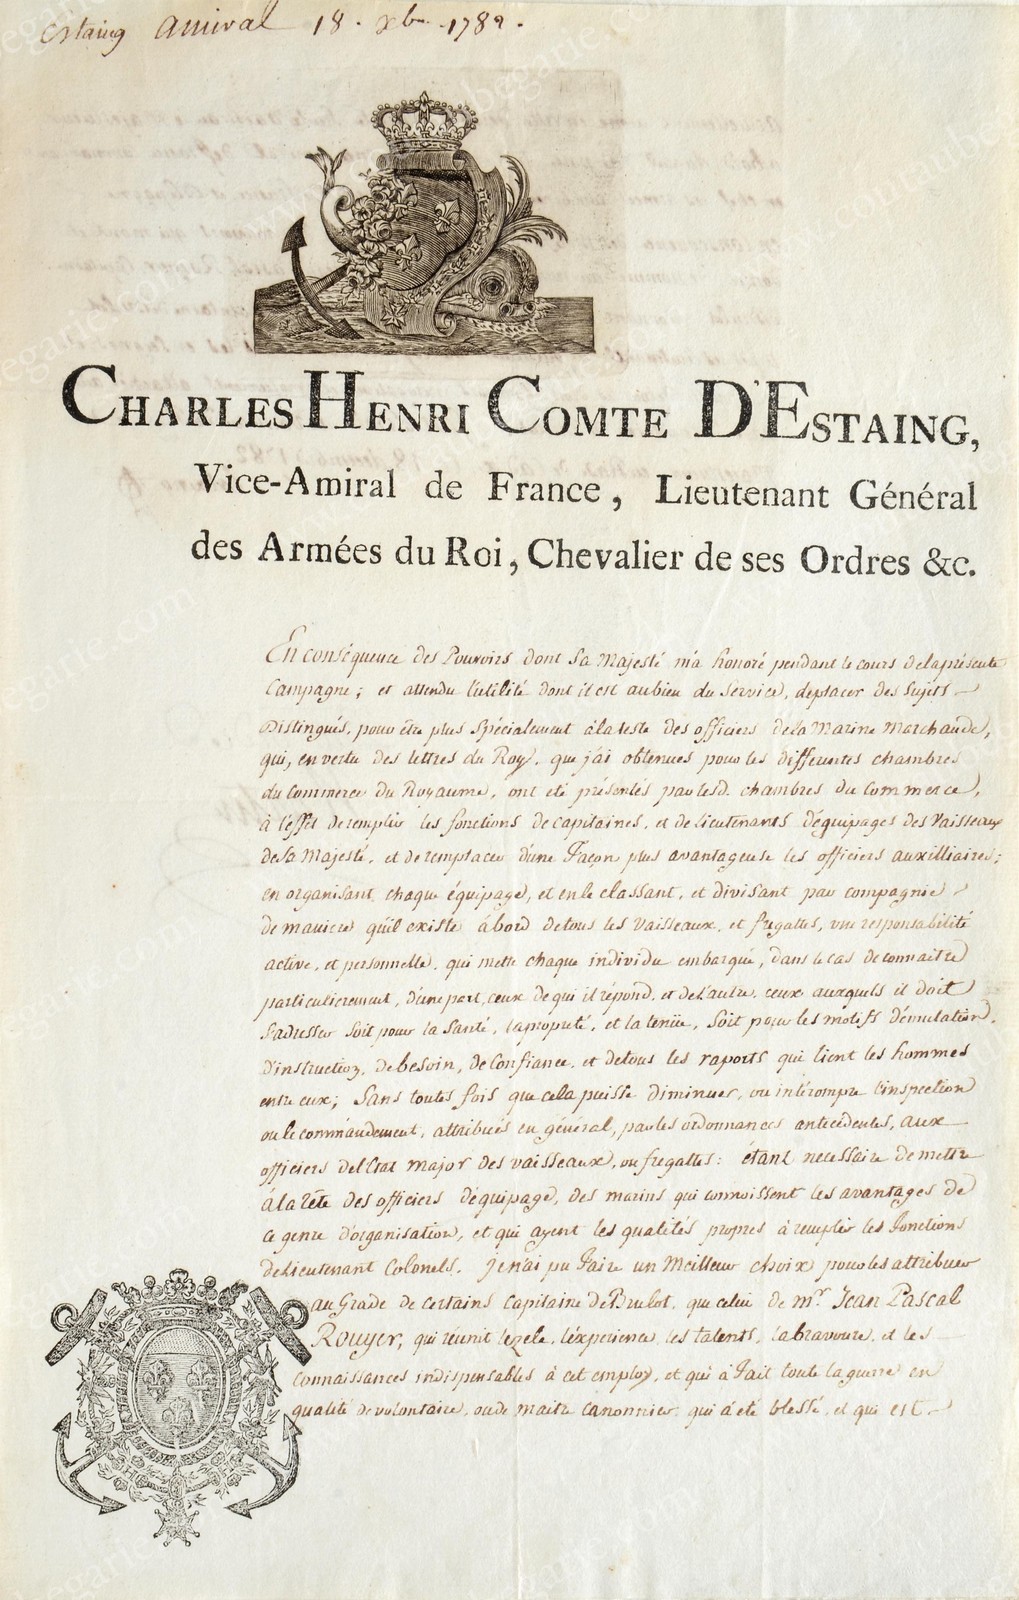 Estaing Amiral 18. xbre 1782.
CHARLES HENRI COMTE D'ESTAING,
Vice-Amiral de France, Lieutenant Général
des Armées du Roi, Chevalier de ses Ordres &c.
En conséquence des Pouvoirs dont Sa Majesté m'a honoré pendant le cours de la présente
Campagne; et attendu l'utilité dont il est au bien du Service, de placer des Sujets
Distingués, pour être plus Spécialement à la teste des officiers de la Marine Marchande,
qui, en vertu des lettres du Roy, que j'ai obtenues pour les differentes chambres
du Commerce du Royaume, ont été présentés par lesd. chambres du Commerce,
à l'effet de remplir les fonctions de capitaines, et de lieutenants d'équipages des Vaisseaux
de Sa Majesté, et de remplacer d'une Façon plus avantageuse les officiers auxilliaires;
en organisant chaque équipage, et en le classant, et divisant par compagnie
de maniere qu'il existe à bord de tous les Vaisseaux, et fregattes, une responsabilité
active, et personnelle, qui mette chaque individu embarqué, dans le cas de connaitre
particulierement, d'une part, ceux de qui il répond, et de l'autre, ceux auxquels il doit
s'adresser soit pour la Santé, la propreté, et la tenüe, Soit pour les motifs d'émulation,
d'instruction, de besoin, de Confiance, et de tous les raports qui lient les hommes
entre eux; Sans toutes fois que cela puisse diminuer, ou intérompre l'inspection
ou le commandement, attribués en général, par les ordonnances antecedentes, aux
officiers de l'Etat major des vaisseaux, ou fregattes: étant necessaire de mettre
à la tête des officiers d'équipage, des marins qui connoissent les avantages de
ce genre d'organisation, et qui ayent les qualités propres à remplir les Fonctions
de Lieutenant Colonels. je n'ai pu Faire un Meilleur choix pour les attribuer
au Grade de certains Capitaine de Brulot, que celui de Mr. Jean Pascal
Rouyer, qui réunit le zele, l'éxperience, les talents, la bravoure, et les
connaissances indispensables à cet employ, et qui à Fait toute la guerre en
qualité de volontaire, ou de maitre canonnier, qui à été blessé, et qui est